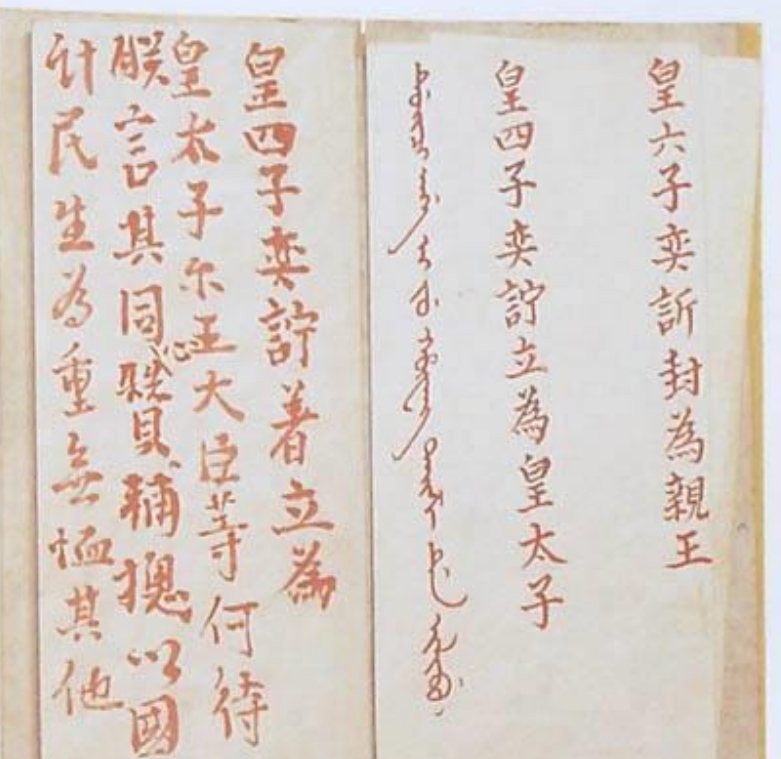 皇六子奕訢封為親王
皇四子奕詝立為皇太子
皇四子奕詝著立為
皇太子尔王大臣等何待
朕言其同心贊輔摠以國
計民生為重無恤其他